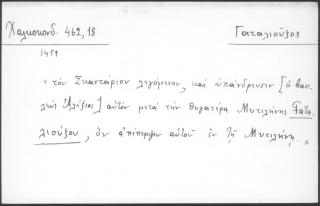 Χαλκοκονδ. 462,18 Γαταλιοῦξος
1451
"τὸν Σκαντάριον λεγόμενον, καὶ ὑπάνδρευσιν [ὁ βασ-
λεὺς Ἀλέξιος] αὐτὸν μετὰ τὴν θυγατέρα Μυτιλήνης Γατα
λιούξου, ὃν ἀπέπεμψεν αὐτοῦ ἐν τῇ Μυτιλήνῃ."